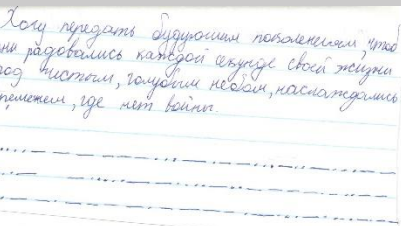 Хочу передать будующим поколениям, чтоб
они радовались каждой секунде своей жизни
под чистым, голубым небом, наслаждались
временем, где нет войны.